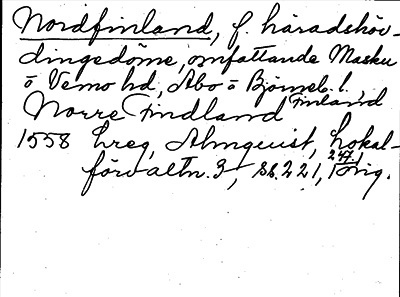 Nordfinland, f. häradshöv-
dingedöme, omfattande Masku
o Vemo hd, Åbo o Björneb. l.,
Finland
Norre Findland
1558 hreg, Almquist, Lokal-
förvaltn. 3, ss. 221,
247. Orig.